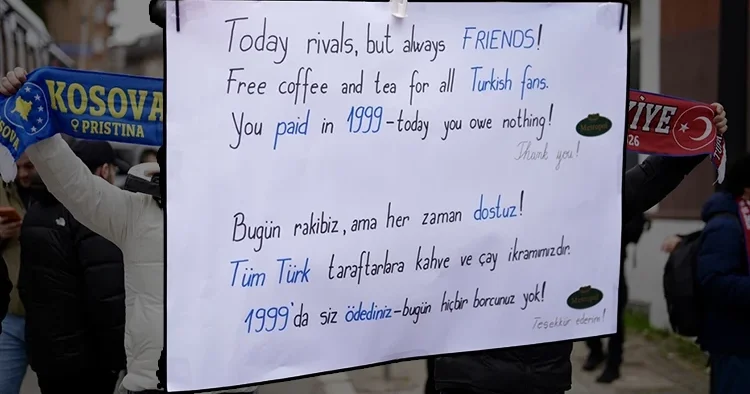 Today rivals, but always FRIENDS!
Free coffee and tea for all Turkish fans.
You paid in 1999-today you owe nothing!
Thank you!
Bugün rakibiz, ama her zaman dostuz!
Tüm Türk taraftarlara kahve ve çay ikramımızdır.
1999'da siz ödediniz-bugün hiçbir borcunuz yok!
Teşekkür ederim!
KOSOVA
PRISTINA
KOSOVA
İYE
26